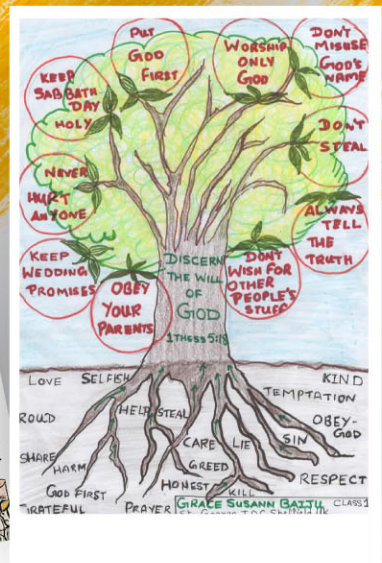 PUT
GOD
FIRST
WORSHIP
ONLY
GOD
DON'T
MISUSE
GOD'S
NAME
KEEP
SABBATH
DAY
HOLY
DON'T
STEAL
NEVER
HURT
ANYONE
ALWAYS
TELL
THE
TRUTH
KEEP
WEDDING
PROMISES
OBEY
YOUR
PARENTS
DISCERN
THE WILL
OF
GOD
1THESS 5:18
DON'T
WISH FOR
OTHER
PEOPLE'S
STUFF
LOVE
SELFISH
KIND
TEMPTATION
ROUD
HELP
STEAL
OBEY-
GOD
SHARE
HARM
CARE
LIE
SIN
GREED
GOD FIRST
HONEST
KILL
RESPECT
PRAYER
GRACE SUSANN BAIJU CLASS 1